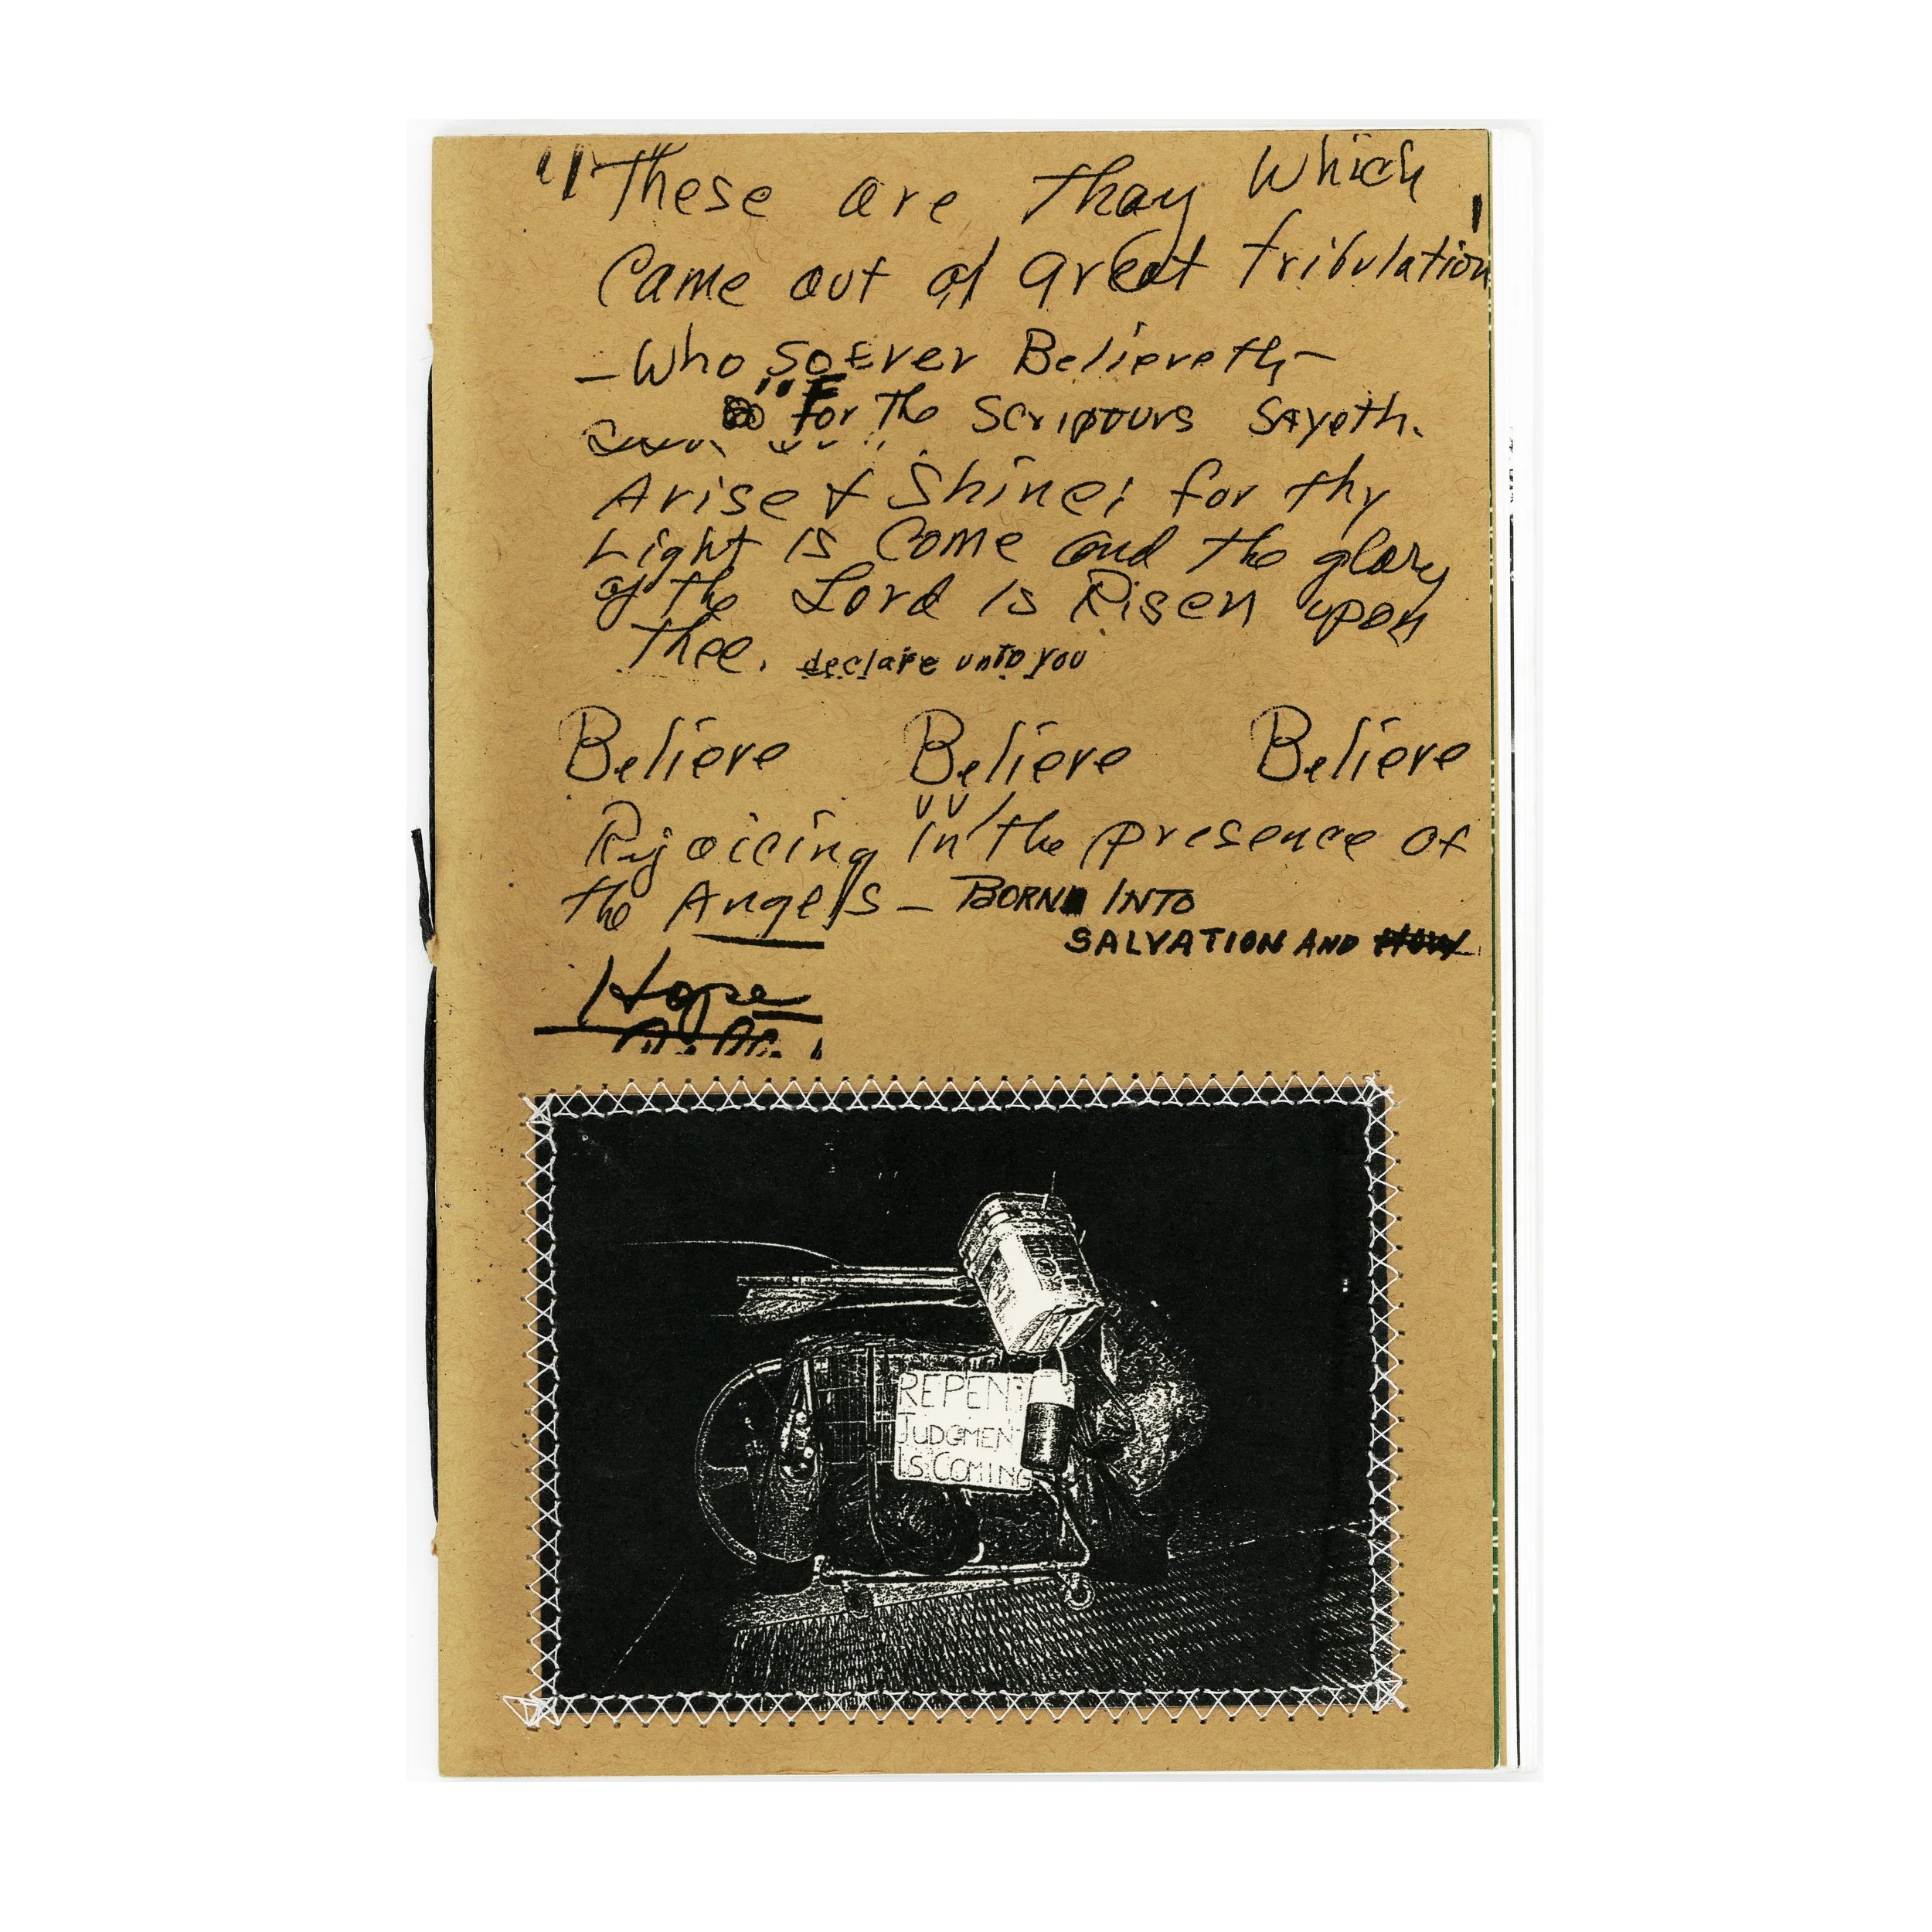 "These are thay which
Came out of great tribulation
- Who SoEver Believeth -
" For the Scripours Sayeth.
Arise & Shine; for thy
Light is Come and the glory
of the Lord is Risen upon
thee. declare unto you
Believe Believe Believe
Rejoicing in the presence of
the Angels - BORN INTO
SALVATION AND
Hope
REPENT
JUDGMENT
IS COMING